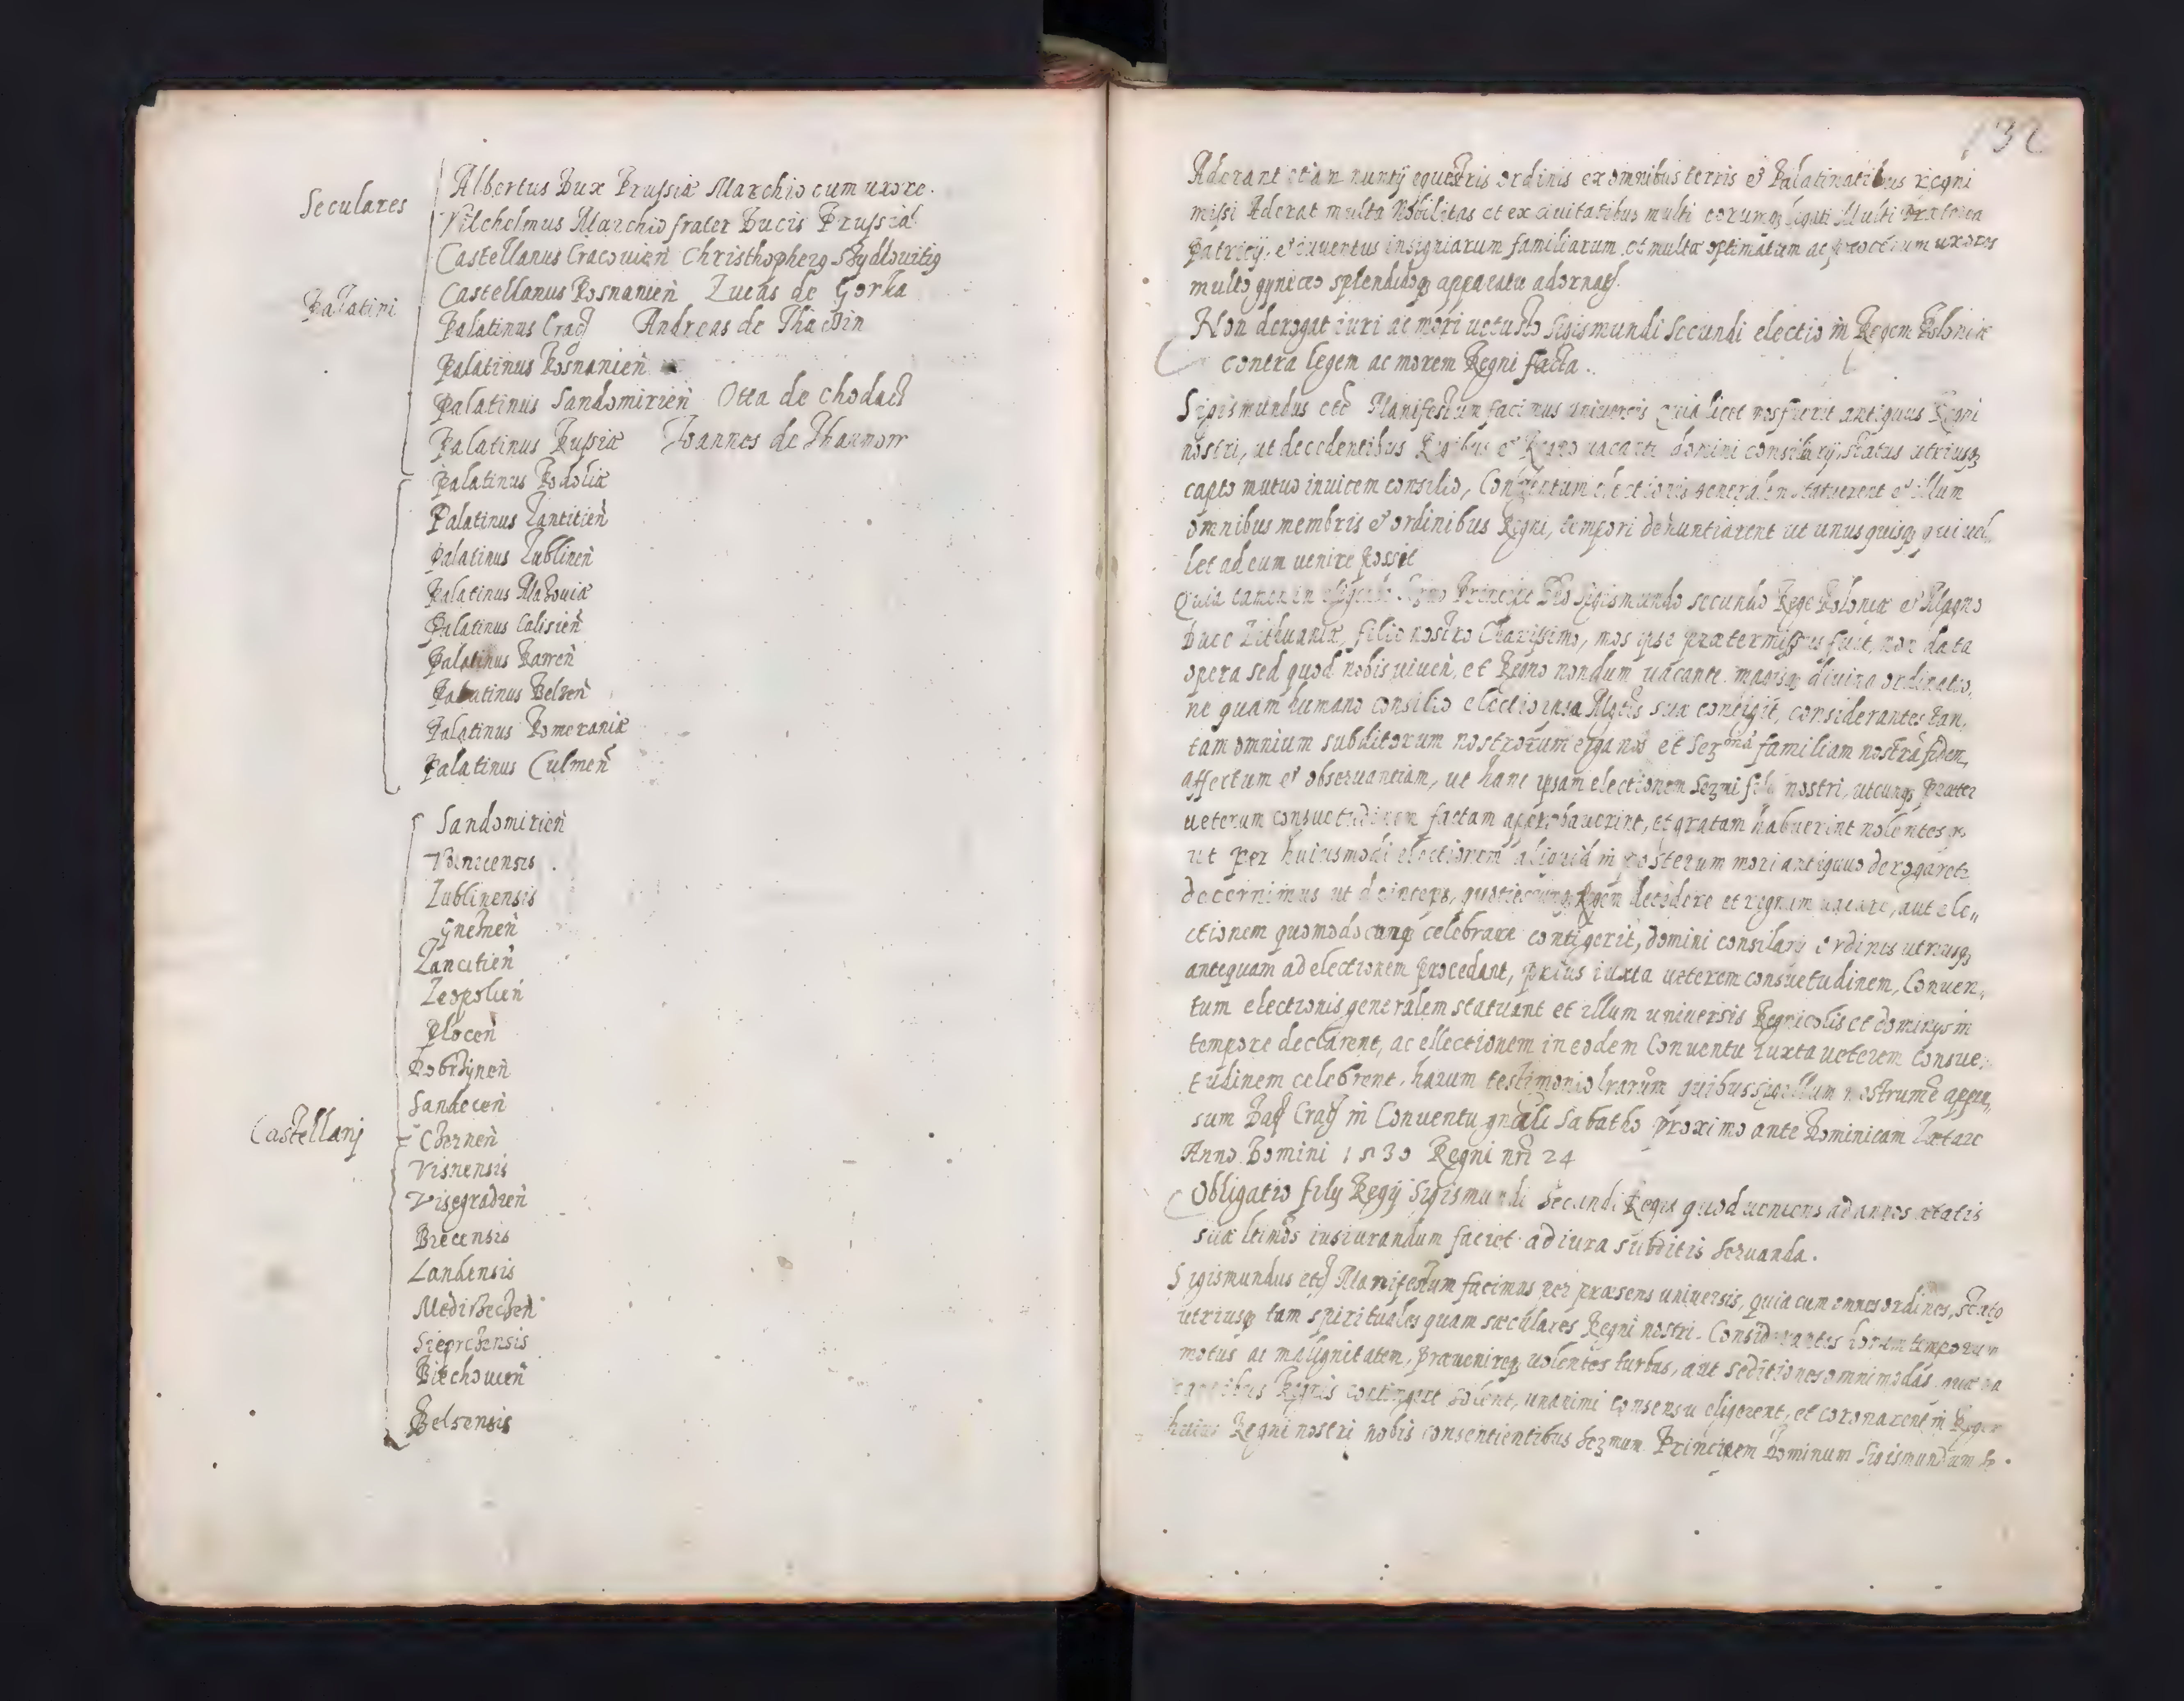 Seculares
Albertus Dux Prussiæ Marchio cum uxore.
Vilchelmus Marchio frater Ducis Prussiæ
Castellanus Cracouien̄ Christhopherꝯ Sÿdlouitiꝯ
Palatini
Castellanus Posnanien̄ Lucas de Gorka
Palatinus Crac̄ Andreas de Thäcÿin
Palatinus Posnanien̄
Palatinus Sandomirien̄ Otta de chodecz
Palatinus Russiæ Joannes de Tharnow
Palatinus Podoliæ
Palatinus Lantitien̄
Palatinus Lublinen̄
Palatinus Mazouiæ
Palatinus Calisien̄
Palatinus Rawen̄
Palatinus Belzen̄
Palatinus Pomeraniæ
Palatinus Culmen̄
Sandomirien̄
Voinicensis.
Lublinensis
Gneznen̄
Lancitien̄
Leopolien̄
Plocen̄
Dobrzÿnen̄
Sandecen̄
Castellanj
Chernen̄
Visnensis
Visegradien̄
Biecensis
Landensis
Medirzeczen̄
Sieprcensis
Biechouien̄
Belsensis
132
Aderant etiam nuntij equestris ordinis ex omnibus terris et Palatinatibus regni
missi Aderat multa Nobilitas et ex ciuitatibus multi eorumqꝫ legati Multi præterea
patricij, et iuuentus insigniarum familiarum, et multæ optimatum ac procerum uxores
multo gyneceo splendidoqꝫ apparatu adornatæ.
Non derogat iuri ac mori uetusto Sigismundi Secundi electio in Regem Poloniæ
contra legem ac morem Regni facta.
Sigismundus etc̄ Manifestum facimus uniuersis quia licet mos fuerit antiquus Regni
nostri, ut decedentibus Regibus et Regno uacante domini consiliarij, status utriusqꝫ
capto mutuo inuicem consilio, Conuentum electionis generalem statuerent et illum
omnibus membris et ordinibus Regni, tempori denuntiarent ut unusquisqꝫ qui uel,
let ad eum uenire possit
Quia tamen in eligendo Sermo Principe Dno Sigismundo secundo Rege Poloniæ et Magno
Duce Lithuaniæ, filio nostro Charissimo, mos ipse prætermissus fuit, non data
opera sed quod nobis uiuen̄, et Regno nondum uacante. magisqꝫ diuina ordinatio,
ne quam humano consilio electio ipsa Mgtis suæ contigit, considerantes tan,
tam omnium subditorum nostrorum erga nos et Serᵐᵃᵐ familiam nostrā fidem,
affectum et obseruantiam, ut hanc ipsam electionem Serzmi filii nostri, utcunqꝫ præter
ueterum consuetudinem factam approbauerint, et gratam habuerint nolentesqꝫ
ut per huiusmodi electionem aliquid in posterum mori antiquo derogaretꝫ
decernimus ut deinceps, quotiescunqꝫ Regem decedere et regnum uacare, aut ele,,
ctionem quomodocunqꝫ celebrare contigerit, domini consiliarij ordinis utriusqꝫ
antequam ad electionem procedant, prius iuxta ueterem consuetudinem, Conuen,
tum electionis generalem statuant et illum uniuersis Regnicolis et dominys in
tempore declarent, ac ellectionem in eodem Conuentu iuxta ueterem Consue,
tudinem celebrent, harum testimonio lrarum quibus sigillum nostrum ē appen,
sum Dat̄ Crac̄ in Conuentu gn̄ali Sabatho proximo ante Dominicam Lætare
Anno Domini 1530 Regni nrī 24
Obligatio filij Regij Sigismundi Secundi Regis quod ueniens ad annos ætatis
suæ ltimos iusiurandum faciet ad iura subditis seruanda.
Sigismundus etc̄ Manifestum facimus per præsens uniuersis, quia cum omnes ordines, status
utriusqꝫ tam spirituales quam sæculares Regni nostri. Considerantes horum temporum
motus ac malignitatem, præuenireqꝫ uolentes turbas, aut seditiones omnimodas quæ ua
cantibus Regnis contingere solent, unanimi consensu eligerent, et coronarent in Regem
huius Regni nostri nobis consentientibus Serzmum Principem Dominum Sigismundum Se